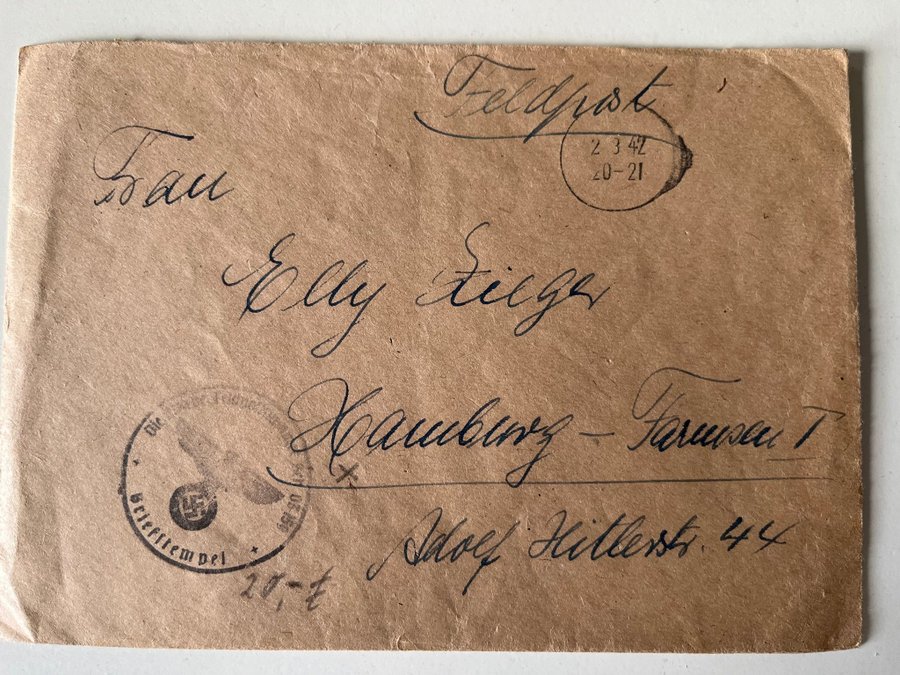 Feldpost
2 3 42
20-21
Frau
Elly Zieger
Hamburg – Farmsen I
Adolf Hitlerstr. 44
Briefstempel
20,-